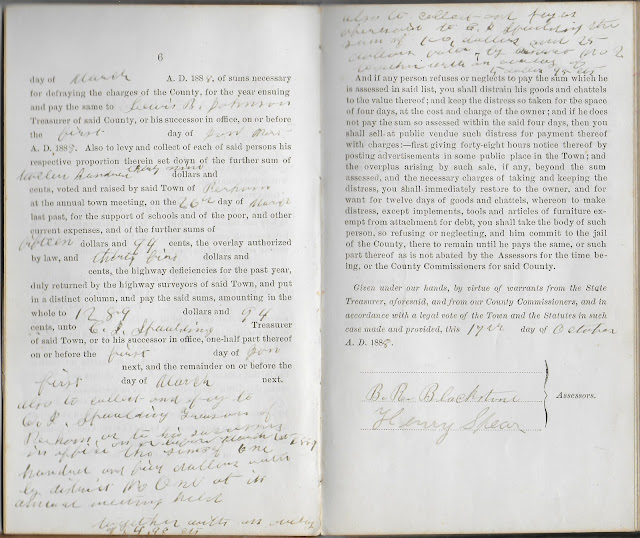 6
day of March A. D. 188 , of sums necessary
for defraying the charges of the County, for the year ensuing
and pay the same to Lewis B. Johnson
Treasurer of said County, or his successor in office, on or before
the first day of Jan next
A. D. 188 . Also to levy and collect of each of said persons his
respective proportion therein set down of the further sum of
twelve hundred dollars and
cents, voted and raised by said Town of Perham
at the annual town meeting, on the 26th day of March
last past, for the support of schools and of the poor, and other
current expenses, and of the further sums of
fifteen dollars and 94 cents, the overlay authorized
by law, and thirty five dollars and
cents, the highway deficiencies for the past year,
duly returned by the highway surveyors of said Town, and put
in a distinct column, and pay the said sums, amounting in the
whole to 1289 dollars and 94
cents, unto C. J. Spaulding Treasurer
of said Town, or to his successor in office, one-half part thereof
on or before the first day of Jan
next, and the remainder on or before the
first day of March next.
also to collect and pay to
C. J. Spaulding Treasurer of
Perham or to his successor
in office on or before March 1st 1889
the sum of One
hundred and fifty dollars
by district No One at its
annual meeting held
together with an overlay
also to collect and pay as
to C. J. Spaulding the
sum of dollars and 25
No 2
And if any person refuses or neglects to pay the sum which he
is assessed in said list, you shall distrain his goods and chattels
to the value thereof; and keep the distress so taken for the space
of four days, at the cost and charge of the owner; and if he does
not pay the sum so assessed within the said four days, then you
shall sell at public vendue such distress for payment thereof
with charges:—first giving forty-eight hours notice thereof by
posting advertisements in some public place in the Town; and
the overplus arising by such sale, if any, beyond the sum
assessed, and the necessary charges of taking and keeping the
distress, you shall immediately restore to the owner, and for
want for twelve days of goods and chattels, whereon to make
distress, except implements, tools and articles of furniture ex-
empt from attachment for debt, you shall take the body of such
person, so refusing or neglecting, and him commit to the jail
of the County, there to remain until he pays the same, or such
part thereof as is not abated by the Assessors for the time be-
ing, or the County Commissioners for said County.
Given under our hands, by virtue of warrants from the State
Treasurer, aforesaid, and from our County Commissioners, and in
accordance with a legal vote of the Town and the Statutes in such
case made and provided, this day of October
A. D. 188 .
B. R. Blackstone
Henry Spear
Assessors.